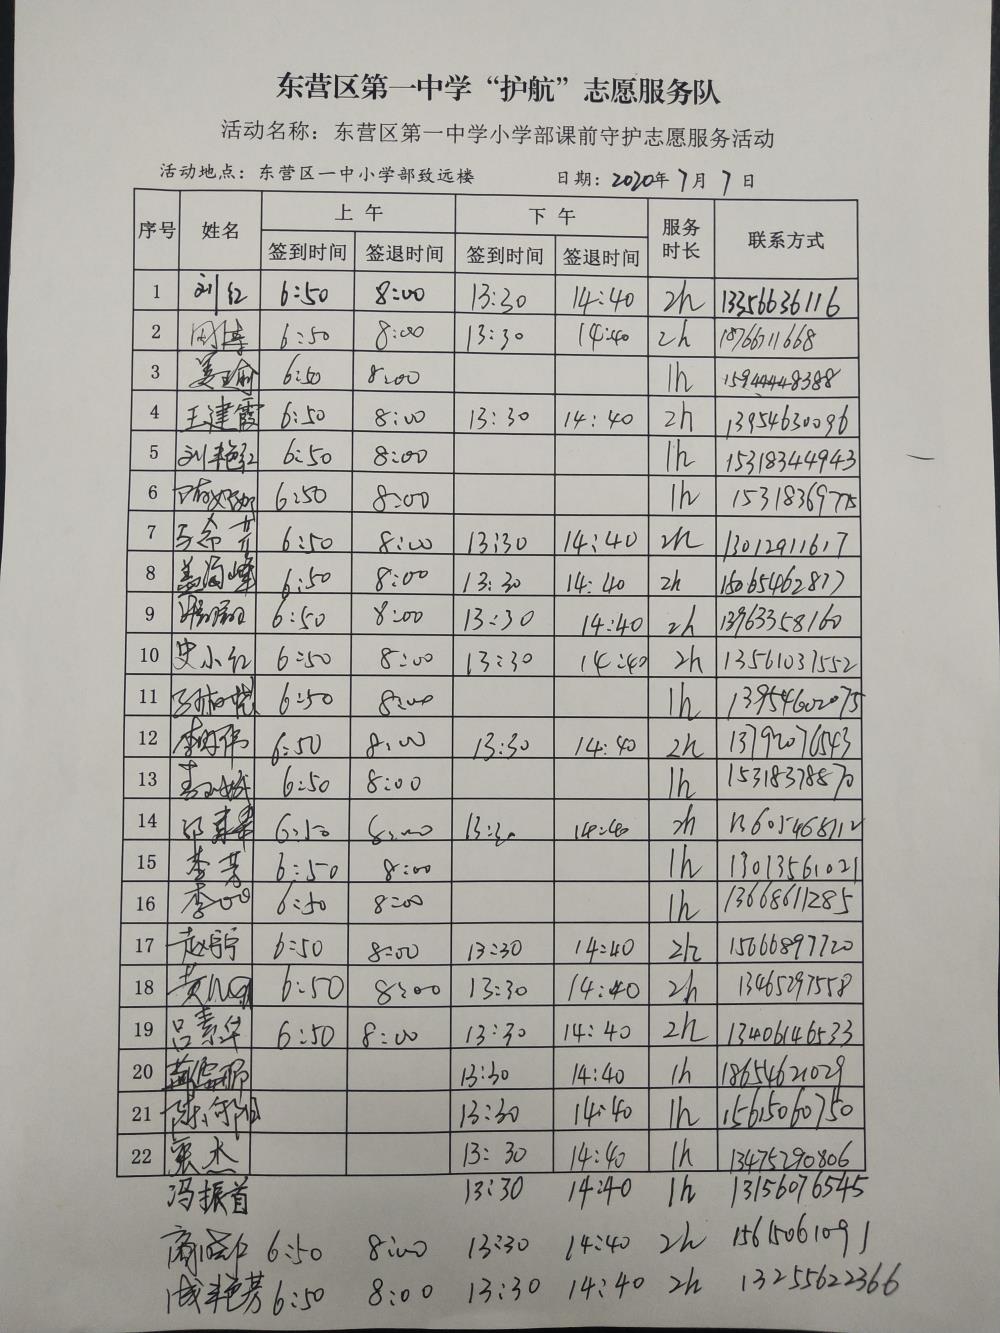 东营区第一中学“护航”志愿服务队
活动名称：东营区第一中学小学部课前守护志愿服务活动
活动地点：东营区一中小学部致远楼 日期：2020年7月7日
序号 姓名 上午 下午 服务时长 联系方式
签到时间 签退时间 签到时间 签退时间
1 刘红 6:50 8:00 13:30 14:40 2h 13356636116
2 周涛 6:50 8:00 13:30 14:40 2h 18766711668
3 姜玉瑜 6:50 8:00 1h 15944448388
4 王建霞 6:50 8:00 13:30 14:40 2h 13954630096
5 刘艳红 6:50 8:00 1h 15318344943
6 6:50 8:00 1h 15318369775
7 马希芹 6:50 8:00 13:30 14:40 2h 13012911617
8 盖海峰 6:50 8:00 13:30 14:40 2h 15065462817
9 6:50 8:00 13:30 14:40 2h 13963358160
10 史小红 6:50 8:00 13:30 14:40 2h 13561037552
11 6:50 8:00 1h 13954602075
12 6:50 8:00 13:30 14:40 2h 13792076543
13 6:50 8:00 1h 15318378870
14 6:50 8:00 13:30 14:40 2h 13605468112
15 李芳 6:50 8:00 1h 13013561021
16 6:50 8:00 1h 13668611285
17 赵宇宁 6:50 8:00 13:30 14:40 2h 15666897720
18 6:50 8:00 13:30 14:40 2h 13465297558
19 吕素华 6:50 8:00 13:30 14:40 2h 13406146533
20 13:30 14:40 1h 18654621029
21 13:30 14:40 1h 15615060750
22 13:30 14:40 1h 13475290806
冯振首 13:30 14:40 1h 13156076545
6:50 8:00 13:30 14:40 2h 15615061091
成艳芳 6:50 8:00 13:30 14:40 2h 13255622366